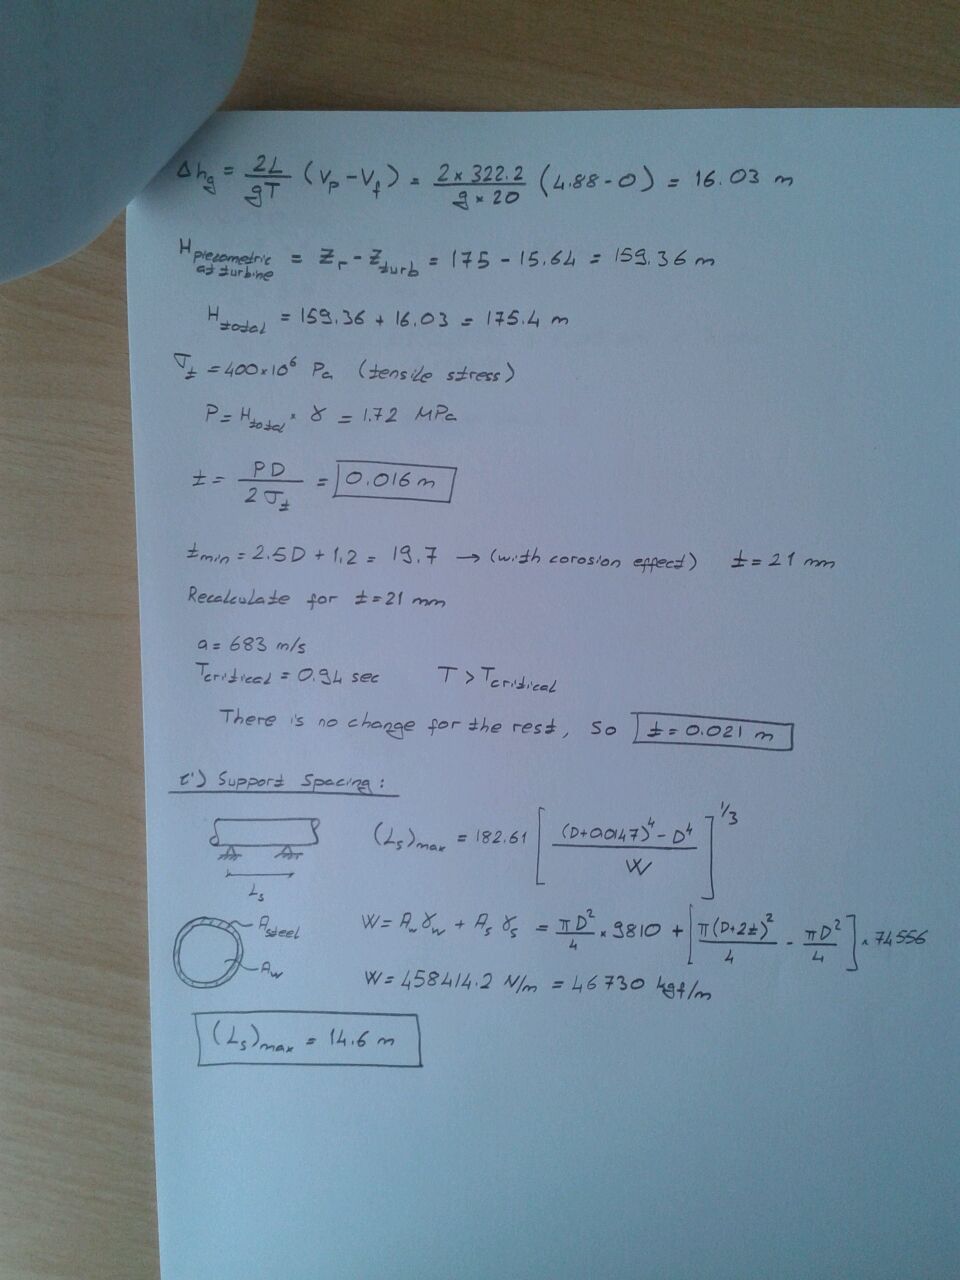 Δh_g = 2L/gT (V_p - V_f) = 2 × 322.2 / g × 20 (4.88 - 0) = 16.03 m
H_piezometric at turbine = Z_r - Z_turb = 175 - 15.64 = 159.36 m
H_total = 159.36 + 16.03 = 175.4 m
σ_t = 400×10⁶ Pa (tensile stress)
P = H_total × γ = 1.72 MPa
t = PD / 2σ_t = 0.016 m
t_min = 2.5D + 1.2 = 19.7 → (with corosion effect) t = 21 mm
Recalculate for t = 21 mm
a = 683 m/s
T_critical = 0.94 sec T > T_critical
There is no change for the rest, so t = 0.021 m
c') Support Spacing:
(L_s)_max = 182.61 [ ((D+0.0147)⁴ - D⁴) / W ]^1/3
L_s
A_steel
A_w
W = A_w γ_w + A_s γ_s = πD²/4 × 9810 + [ π(D+2t)²/4 - πD²/4 ] × 74556
W = 458414.2 N/m = 46730 kgf/m
(L_s)_max = 14.6 m